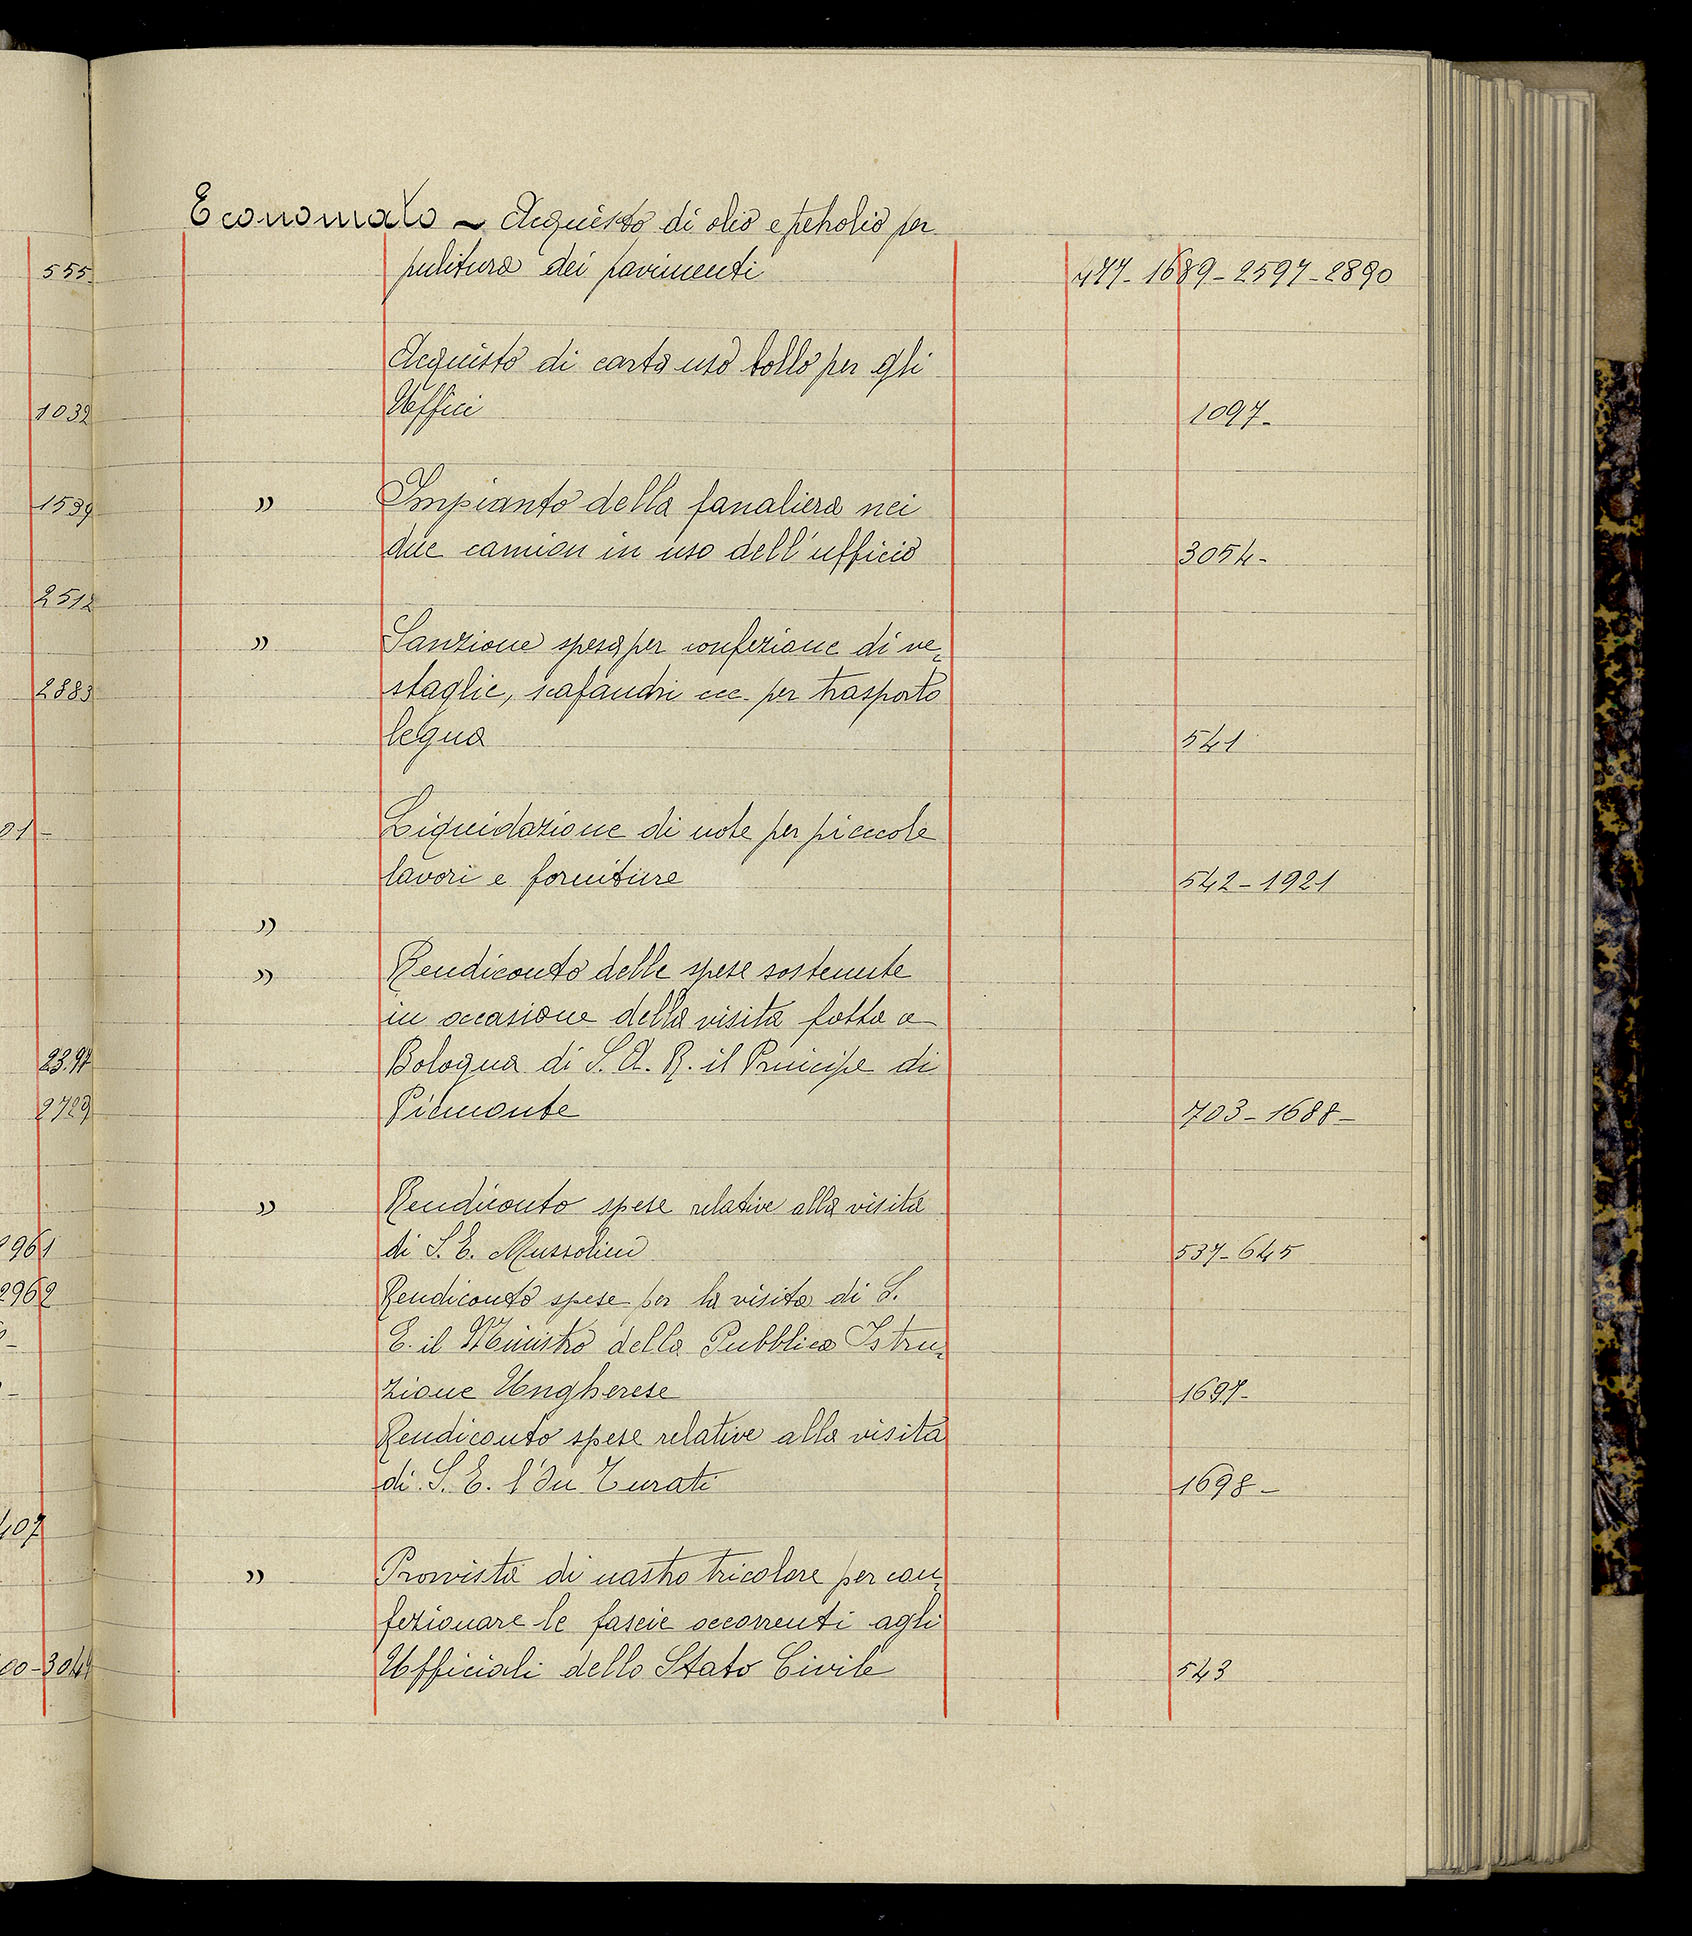 Economato ~ Acquisto di olio e petrolio per
pulitura dei pavimenti 477- 1689- 2597- 2890
555-
Acquisto di carta uso bollo per gli
Uffici 1097-
1032
" Impianto della fanaliera nei
1539
due camion in uso dell'ufficio 3054-
2512
" Sanzione spesa per confezione di ve=
staglie, scafandri ecc. per trasporto
2883
legna 541
Liquidazione di note per piccole
01-
lavori e forniture 542-1921
"
" Rendiconto delle spese sostenute
in occasione della visita fatta a
Bologna di S. A. R. il Principe di
23.97
Piemonte 703-1688-
2729
" Rendiconto spese relative alla visita
di S. E. Mussolini 537-645
2961
Rendiconto spese per la visita di S.
2962
E. il Ministro della Pubblica Istru=
zione Ungherese 1697-
Rendiconto spese relative alla visita
di S. E. l'On Turati 1698-
407
" Provvista di nastro tricolore per con=
fezionare le fascie occorrenti agli
Ufficiali dello Stato Civile 543